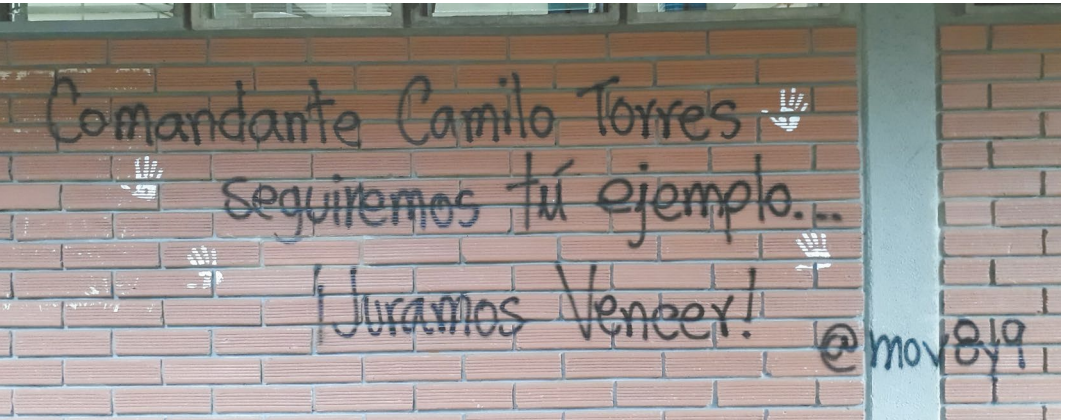 Comandante Camilo Torres
seguiremos tú ejemplo...
¡Juramos Vencer!
@mov8y9